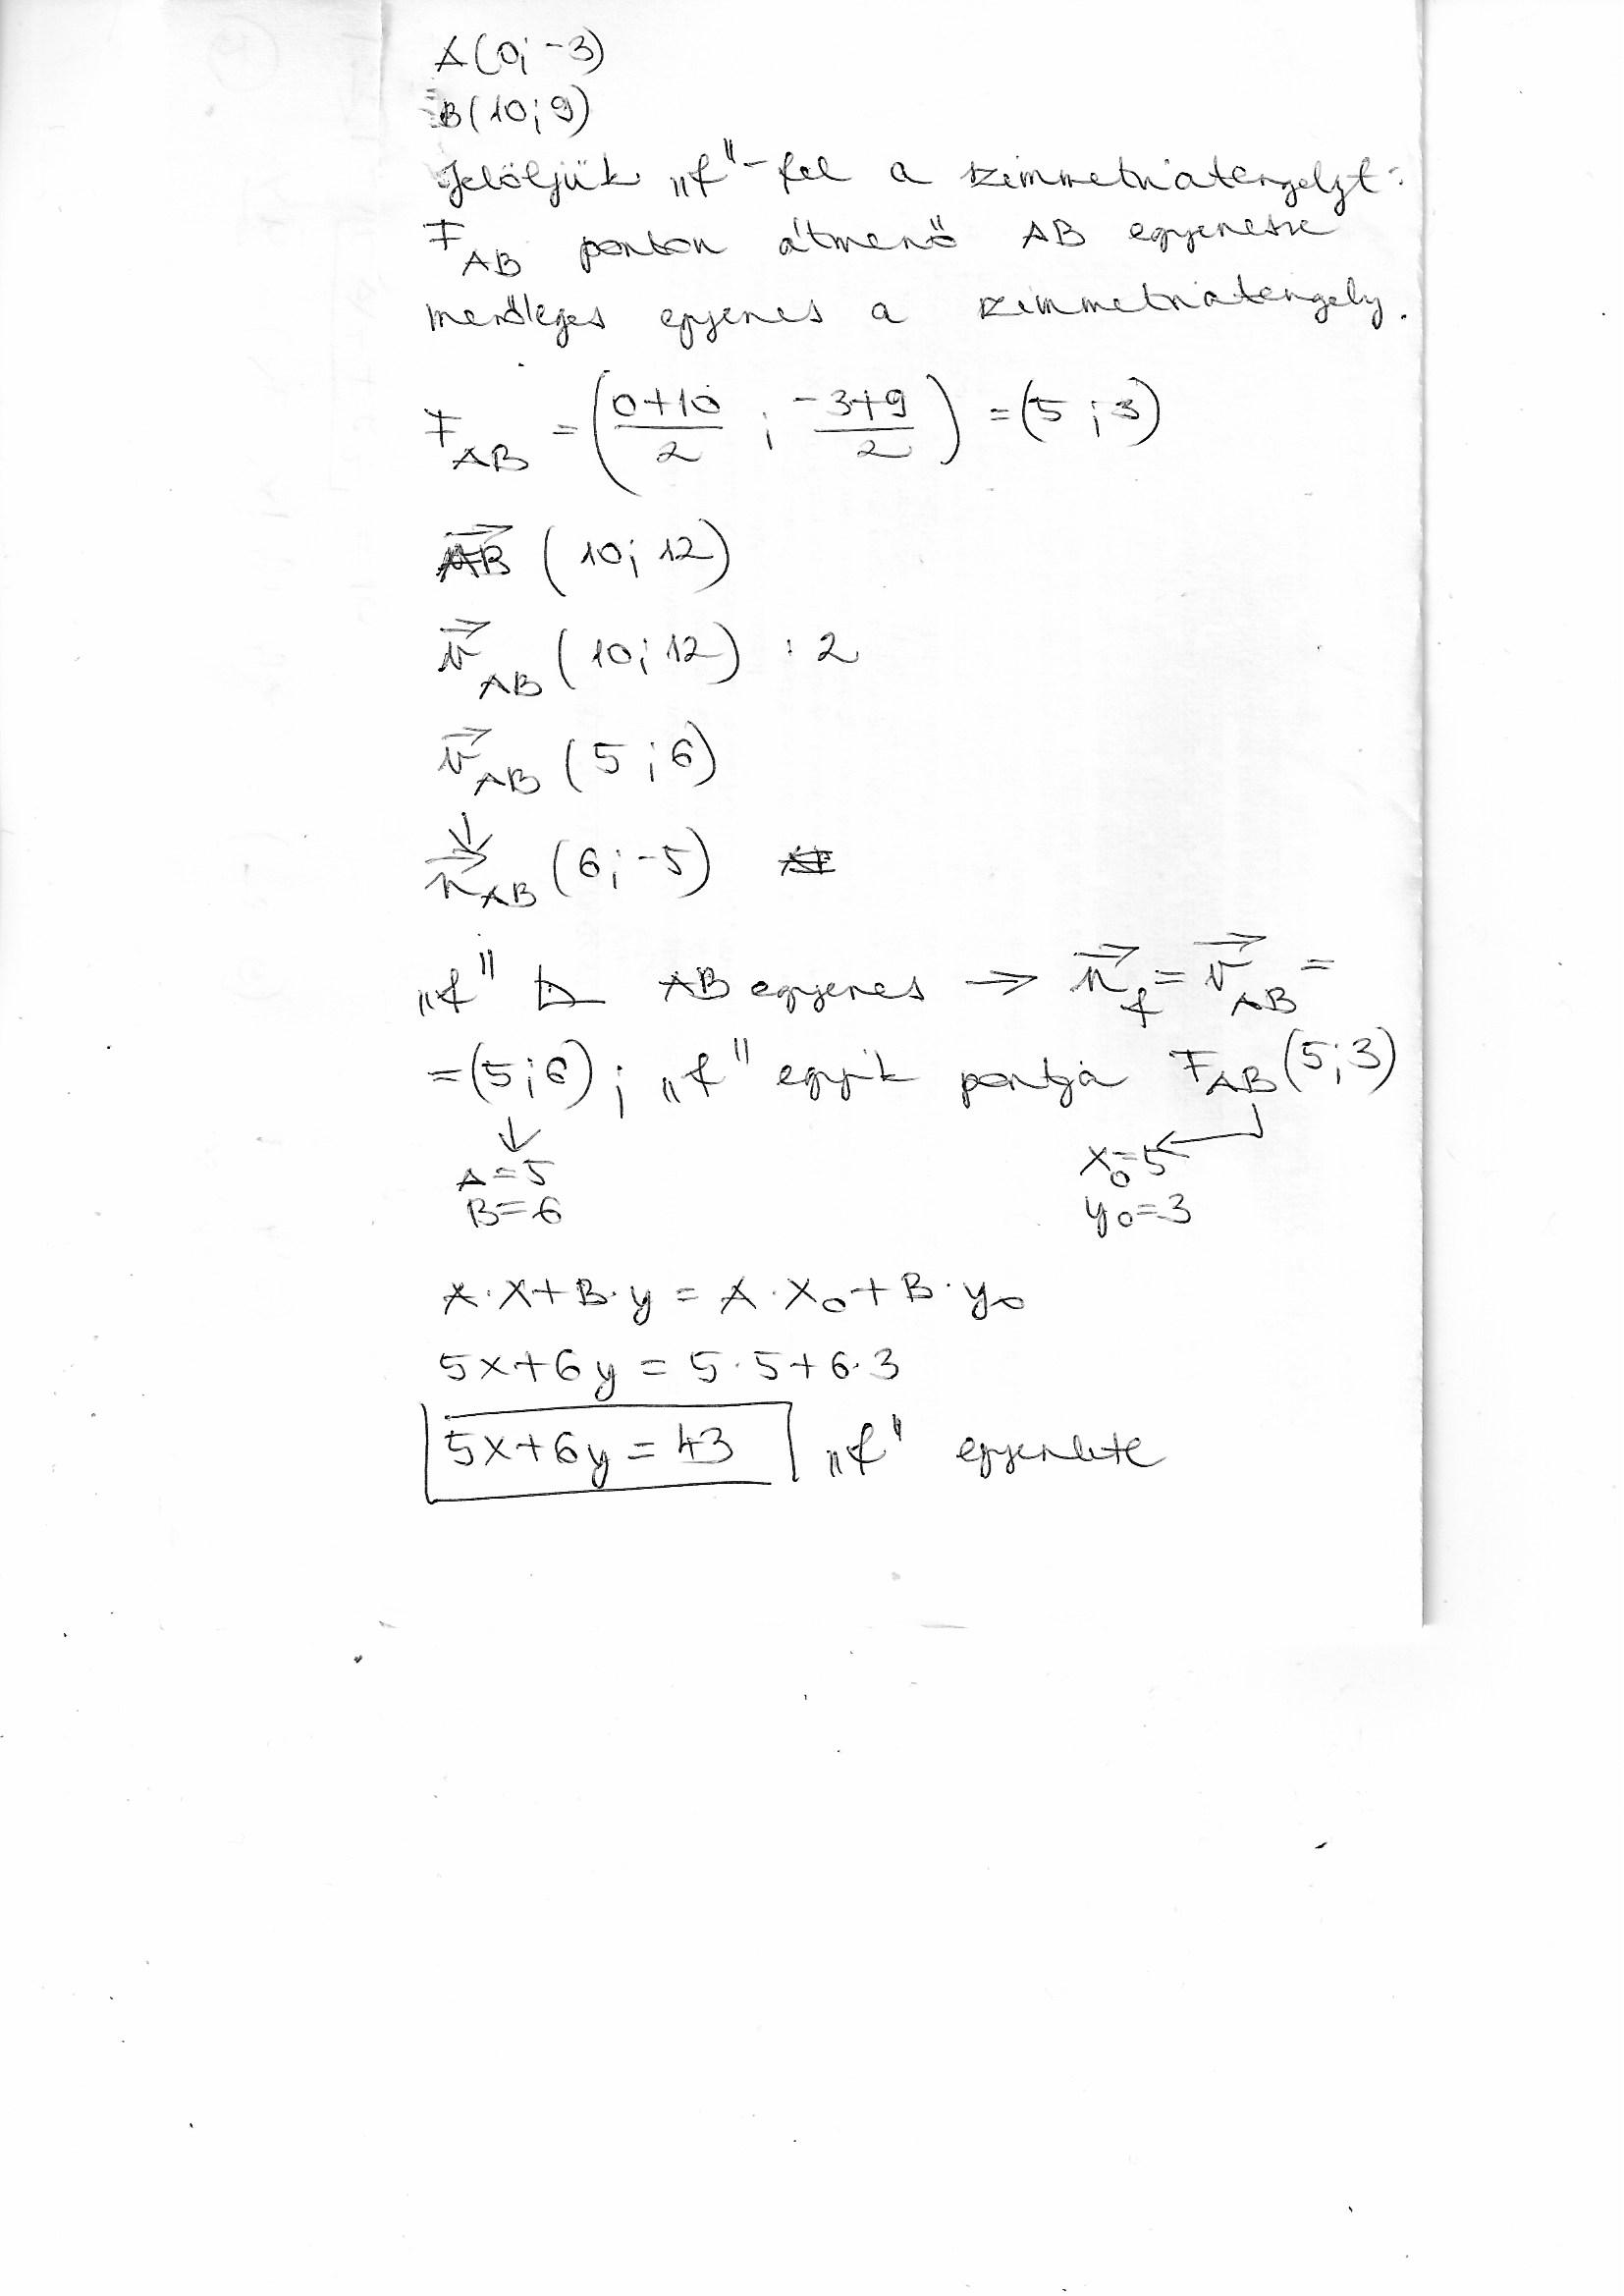 A(0; -3)
B(10; 9)
Jelöljük „f"-fel a szimmetriatengelyt:
F_AB ponton átmenő AB egyenesre
merőleges egyenes a szimmetriatengely.
F_AB = ((0+10)/2 ; (-3+9)/2) = (5 ; 3)
AB→ (10; 12)
v→_AB (10; 12) : 2
v→_AB (5 ; 6)
↓
n→_AB (6; -5)
„f" ⊥ AB egyenes → n→_f = v→_AB =
= (5; 6) ; „f" egyik pontja F_AB (5; 3)
↓
A=5 x₀=5
B=6 y₀=3
A·x+B·y = A·x₀+B·y₀
5x+6y = 5·5+6·3
5x+6y = 43 „f" egyenlete